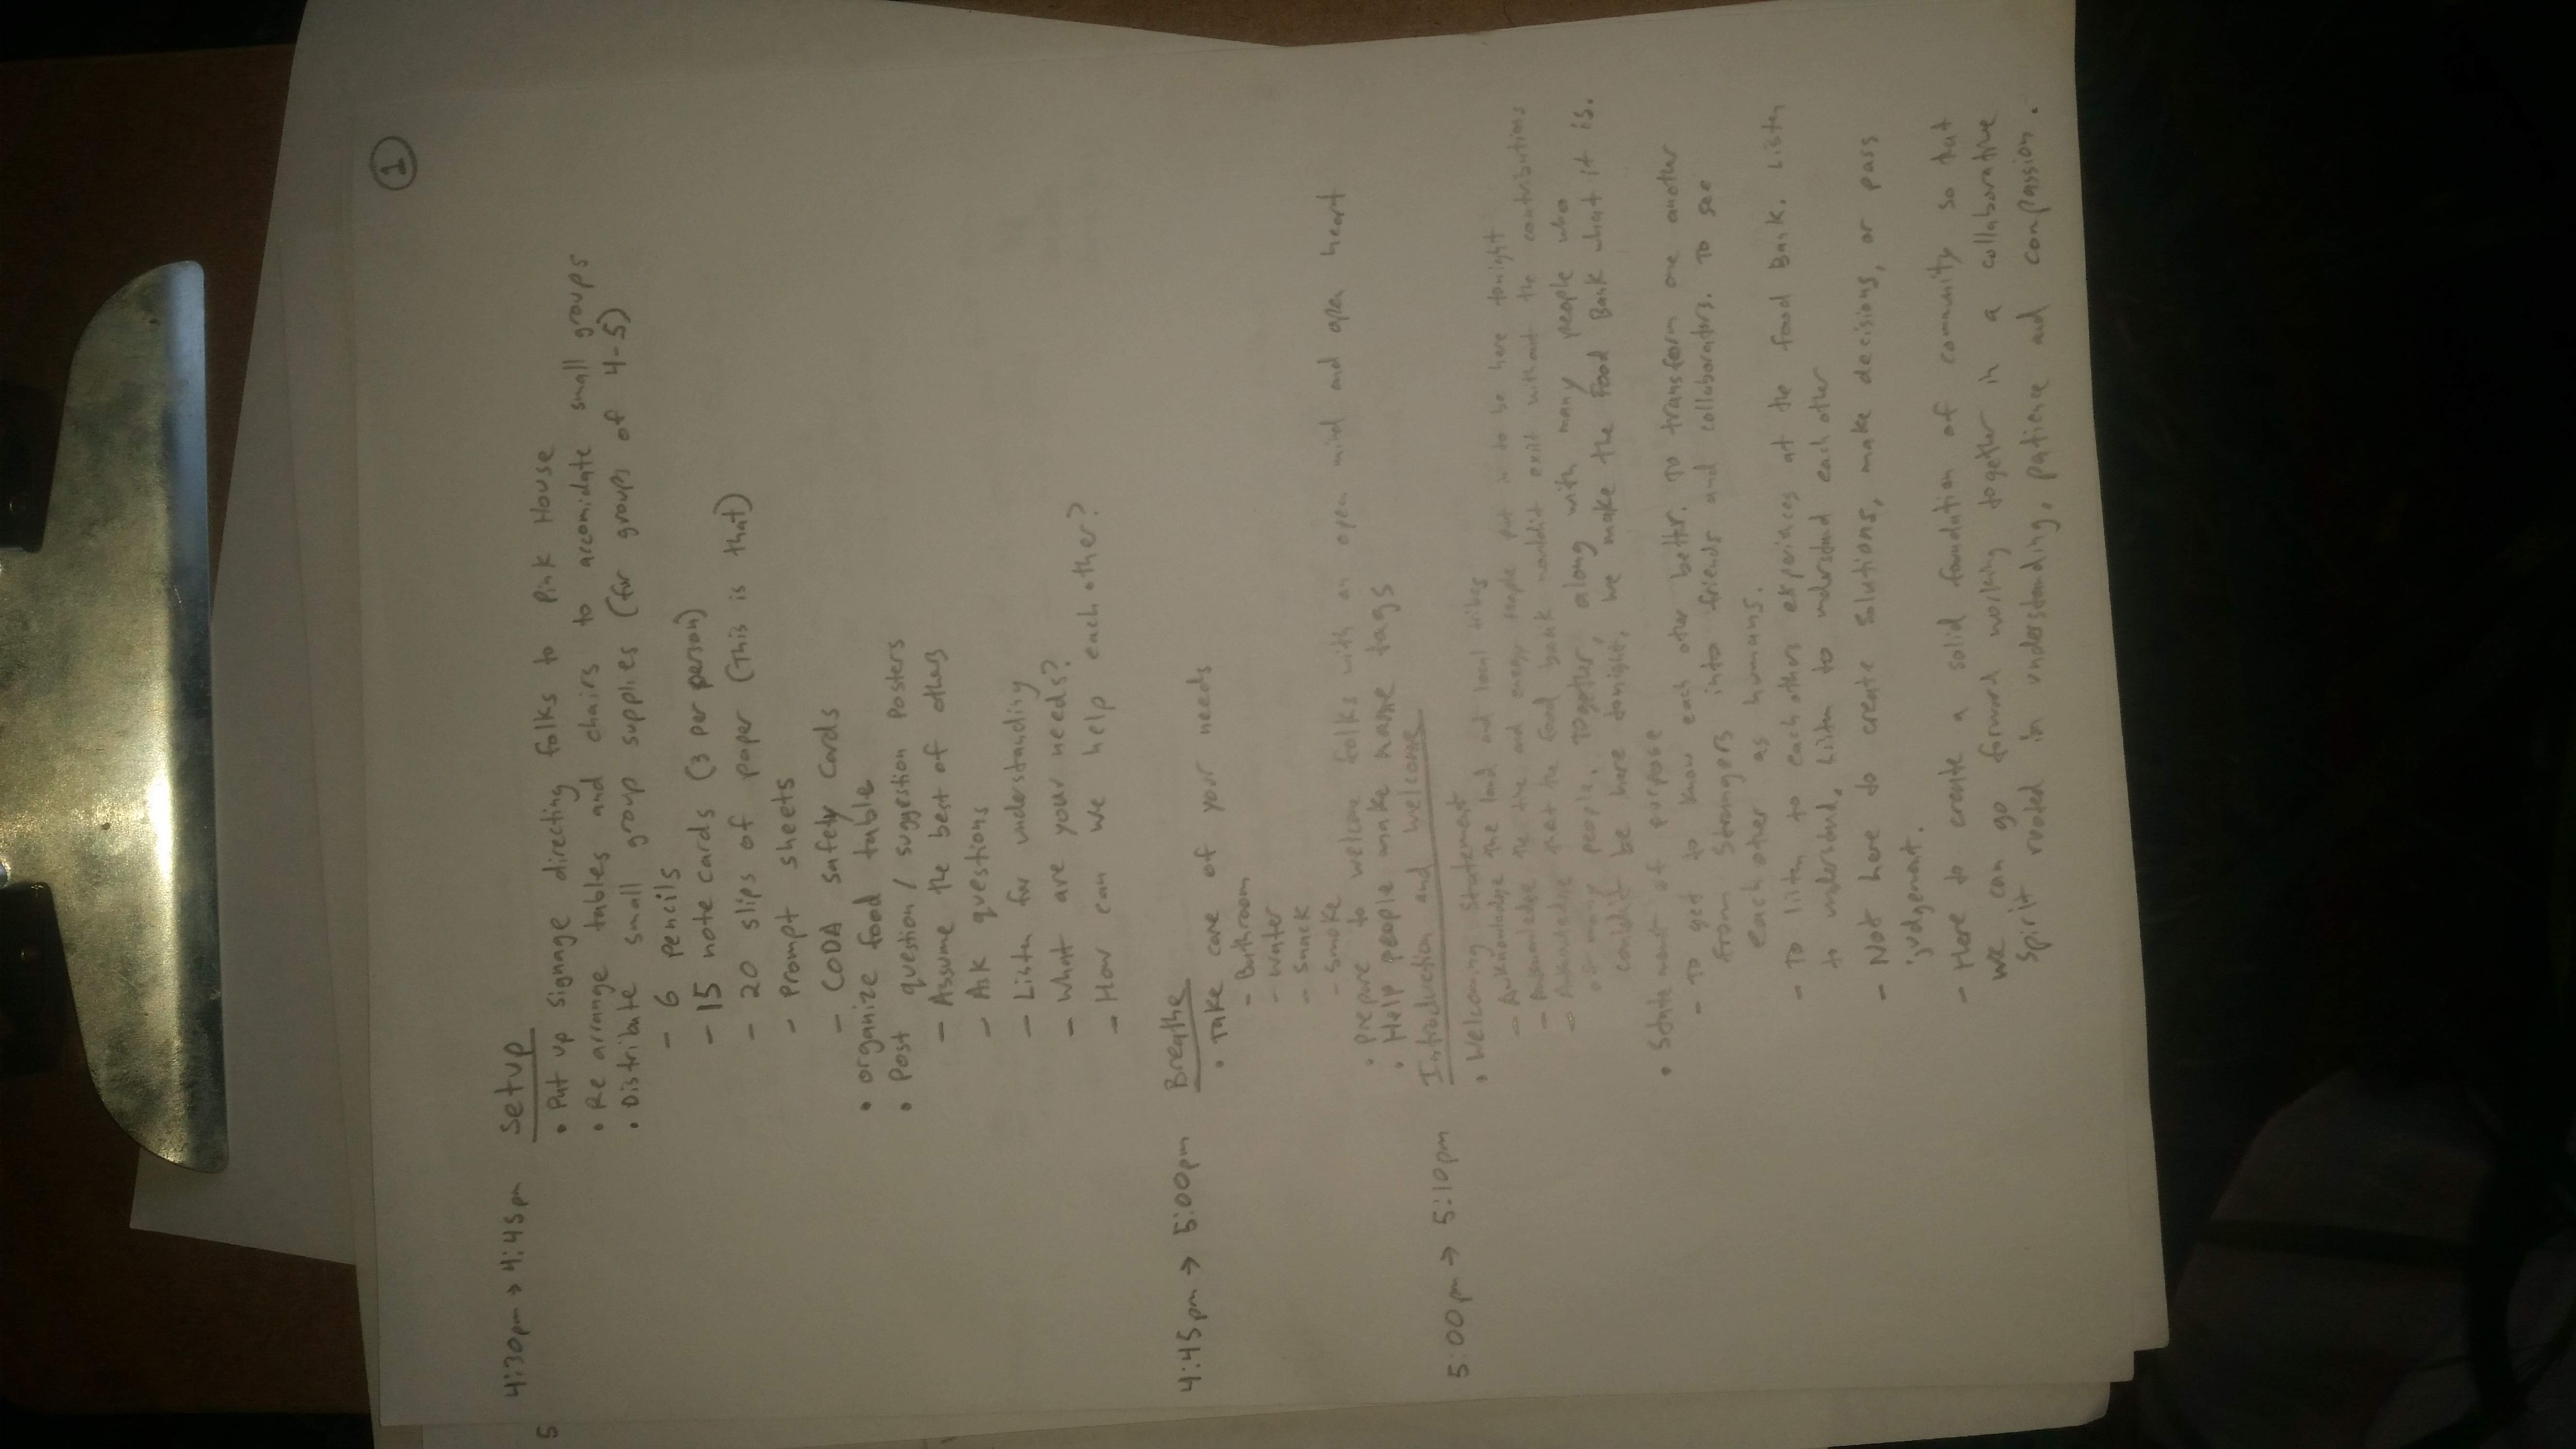 1
4:30pm → 4:45pm Setup
5
• Put up signage directing folks to Pink House
• Re arrange tables and chairs to accomidate small groups
• Distribute small group supplies (for groups of 4-5)
- 6 pencils
- 15 note cards (3 per person)
- 20 slips of paper (This is that)
- Prompt sheets
- CODA safety cards
• organize food table
• Post question / suggestion Posters
- Assume the best of others
- Ask questions
- Listen for understanding
- What are your needs?
- How can we help each other?
4:45pm → 5:00pm Breathe
• Take care of your needs
- Bathroom
- water
- snack
- smoke
• Prepare to welcome folks with an open mind and open heart
• Help people make name tags
5:00pm → 5:10pm Introduction and welcome
• Welcoming statement
- Awknowledge the land and local tribes
- Awknowledge the time and energy people put in to be here tonight
- Awknowledge that the food bank wouldn't exist without the contributions
of many people. Together, along with many people who
couldn't be here tonight, we make the Food Bank what it is.
• Statement of purpose
- To get to know each other better. To transform one another
from strangers into friends and collaborators. To see
each other as humans.
- To listen to each others experiences at the food Bank. Listen
to understand. Listen to understand each other
- Not here to create solutions, make decisions, or pass
judgement.
- Here to create a solid foundation of community so that
we can go forward working together in a collaborative
spirit rooted in understanding, patience and compassion.